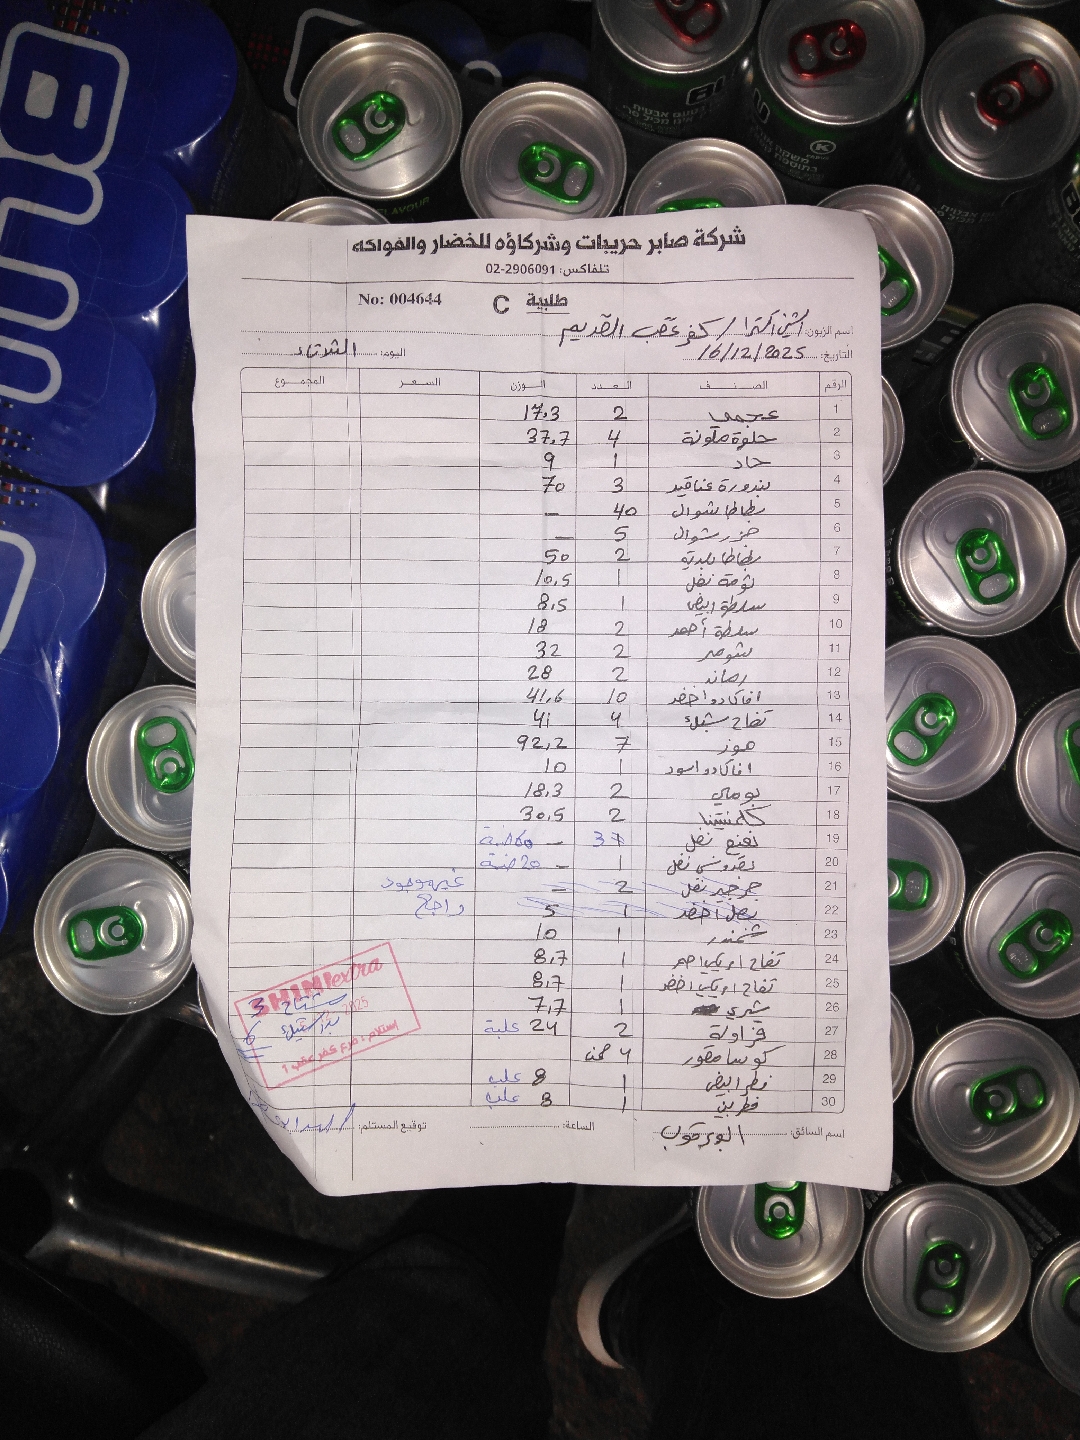 BLU
شركة صابر حريبات وشركاؤه للخضار والفواكه
تلفاكس: 02-2906091
No: 004644 C طلبية
اسم الزبون: اكسترا / كفر عقب القديم
التاريخ: 16/12/2025 اليوم: الثلاثاء
الرقم الصنف العدد الوزن السعر المجموع
1 عجمي 2 17,3
2 حلوة ملونة 4 37,7
3 حاد 1 9
4 بندورة عناقيد 3 70
5 بطاطا شوال 40 -
6 جزر شوال 5 -
7 بطاطا بلدية 2 50
8 ثومة نفل 1 10,5
9 سلطة ابيض 1 8,5
10 سلطة أحمر 2 18
11 شومر 2 32
12 رمان 2 28
13 افاكادو اخضر 10 41,6
14 تفاح 4 41
15 موز 7 92,2
16 افاكادو اسود 1 10
17 بوملي 2 18,3
18 كلمنتينا 2 30,5
19 نعنع نفل 3 -
20 بقدونس نفل 1 - 20 ضمة
21 جرجير نفل 2 - غير موجود
22 بصل اخضر 1 5 راجع
23 شمندر 1 10
24 تفاح امريكي احمر 1 8,7
25 تفاح امريكي اخضر 1 8,7
26 شيري 1 7,7
27 فراولة 2 24 علبة
28 كوسا مقور 4 صحن
29 فطر ابيض 1 8 علب
30 فطر بني 1 8 علب
SHINI extra
مشتاح 3
6
استلام : فرع كفر عقب 1
اسم السائق: الساعة: توقيع المستلم: